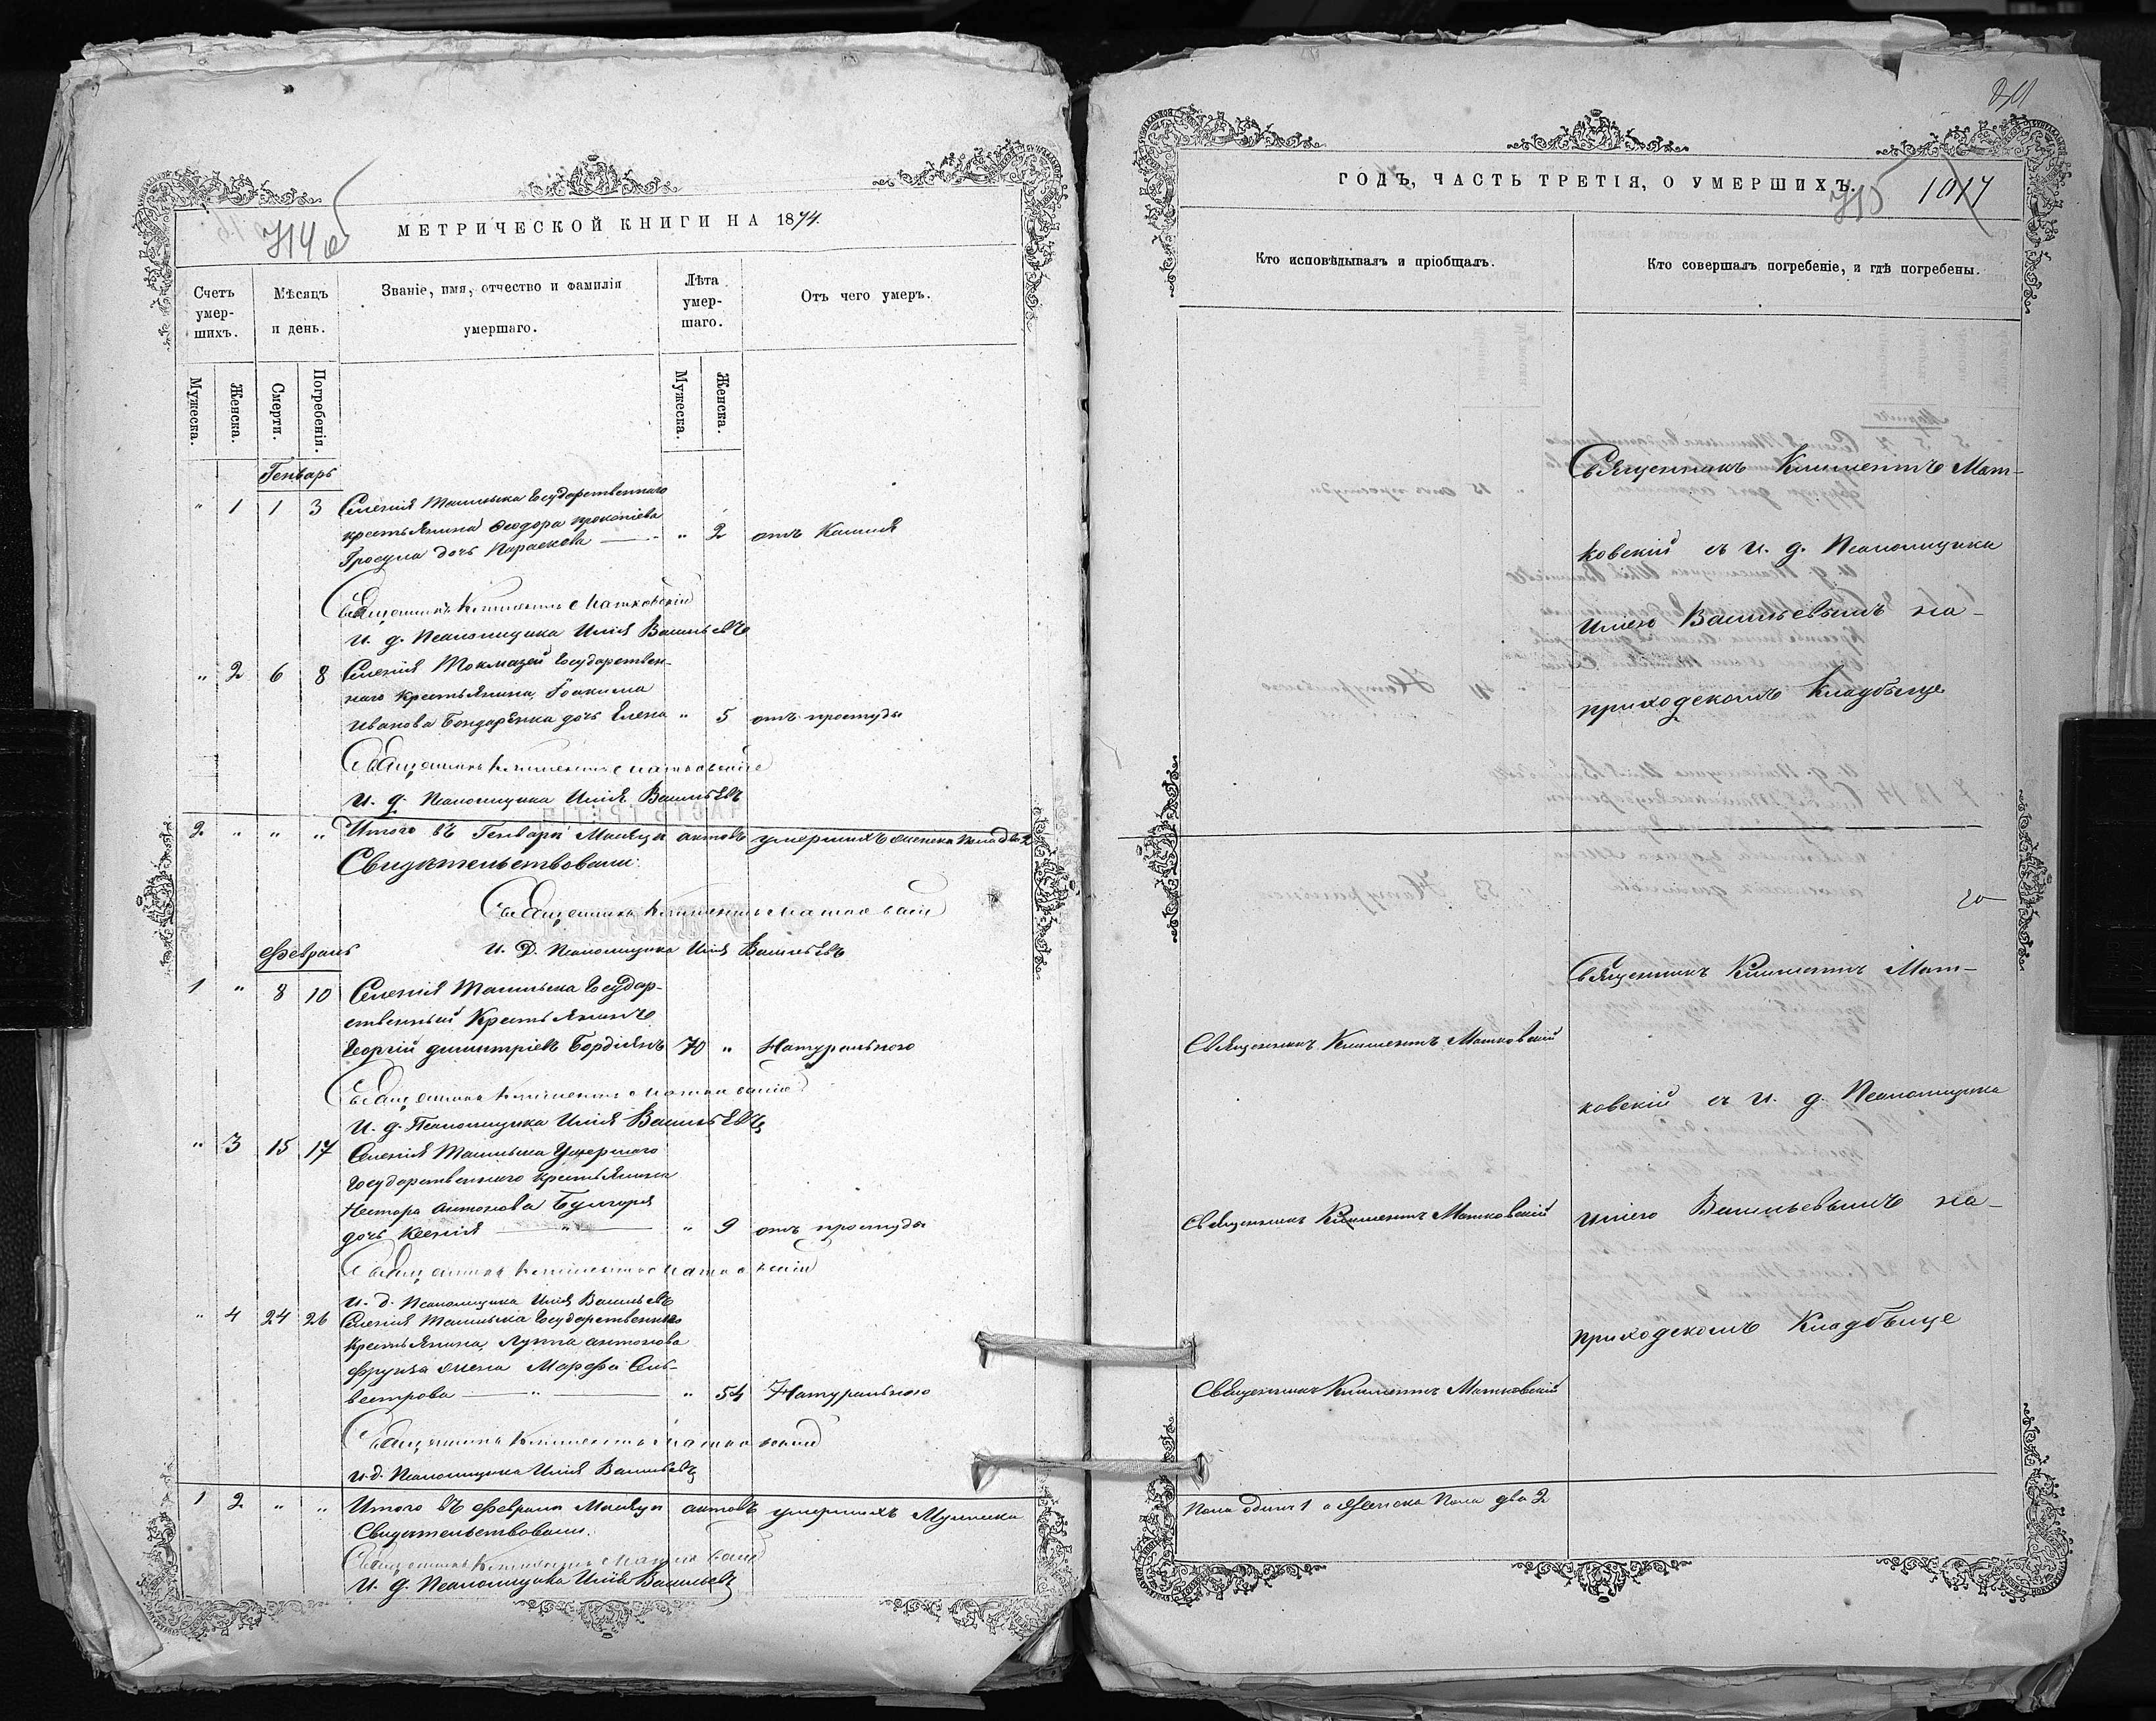 714 об
МЕТРИЧЕСКОЙ КНИГИ НА 1874
Счетъ умер-шихъ.
Мѣсяцъ и день.
Званіе, имя, отчество и фамилія умершаго.
Лѣта умер-шаго.
Отъ чего умеръ.
Мужеска.
Женска.
Смерти.
Погребенія.
Мужеска.
Женска.
Генварь
" 1 1 3 Селенія Государственнаго
крестьянина Ѳеодора Прокопіева
Гросула дочь Параскева — " 2 отъ Кашля
Священникъ Климентъ Матковскій
И. д. Псаломщика Илія Васильевъ
" 2 6 8 Селенія Токмазеи Государствен-
наго крестьянина Іоакима
Иванова Бондарѣнка дочь Елена " 5 отъ простуды
Священникъ Климентъ Матковскій
И. д. Псаломщика Илія Васильевъ
2 " " " Итого въ Генварѣ Мѣсяцѣ актовъ умершихъ женска пола два 2
Свидѣтельствовали:
Священникъ Климентъ Матковскій
И. Д. Псаломщика Илія Васильевъ
Февраль
1 " 8 10 Селенія Государ-
ственный Крестьянинъ
Георгій Димитріевъ Бордіянъ 70 " Натурального
Священникъ Климентъ Матковскій
И. д. Псаломщика Илія Васильевъ
" 3 15 17 Селенія Умершаго
Государственнаго крестьянина
Нестора Антонова Булгаря
дочь Ксенія — " — " 9 отъ простуды
Священникъ Климентъ Матковскій
И. д. Псаломщика Илія Васильевъ
" 4 24 26 Селенія Государственнаго
Крестьянина Луппа Антонова
Фрунза жена Марфа Силь-
вестрова — " — " 54 Натурального
Священникъ Климентъ Матковскій
И. д. Псаломщика Илія Васильевъ
1 2 " " Итого въ Февралѣ Мѣсяцѣ актовъ умершихъ Мужеска
Свидѣтельствовали.
Священникъ Климентъ Матковскій
И. д. Псаломщика Илія Васильевъ
ГОДЪ, ЧАСТЬ ТРЕТІЯ, О УМЕРШИХЪ.
715 1017
Кто исповѣдывалъ и пріобщалъ.
Кто совершалъ погребеніе, и гдѣ погребены.
Священникъ Климентъ Мат-
ковскій съ И. д. Псаломщика
Иліею Васильевымъ на
приходскомъ Кладбище
Священникъ Климентъ Мат-
Священникъ Климентъ Матковскій
ковскій съ И. д. Псаломщика
Священникъ Климентъ Матковскій
Иліею Васильевымъ на
приходскомъ Кладбище
Священникъ Климентъ Матковскій
Пола одинъ 1 а Женска Пола два 2